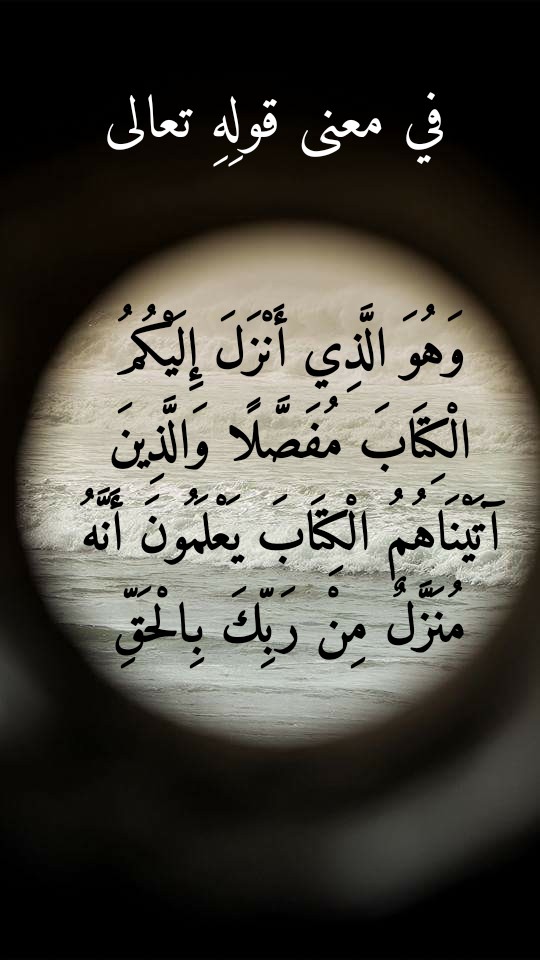 في معنى قولِهِ تعالى
وَهُوَ الَّذِي أَنْزَلَ إِلَيْكُمُ
الْكِتَابَ مُفَصَّلًا وَالَّذِينَ
آتَيْنَاهُمُ الْكِتَابَ يَعْلَمُونَ أَنَّهُ
مُنَزَّلٌ مِنْ رَبِّكَ بِالْحَقِّ